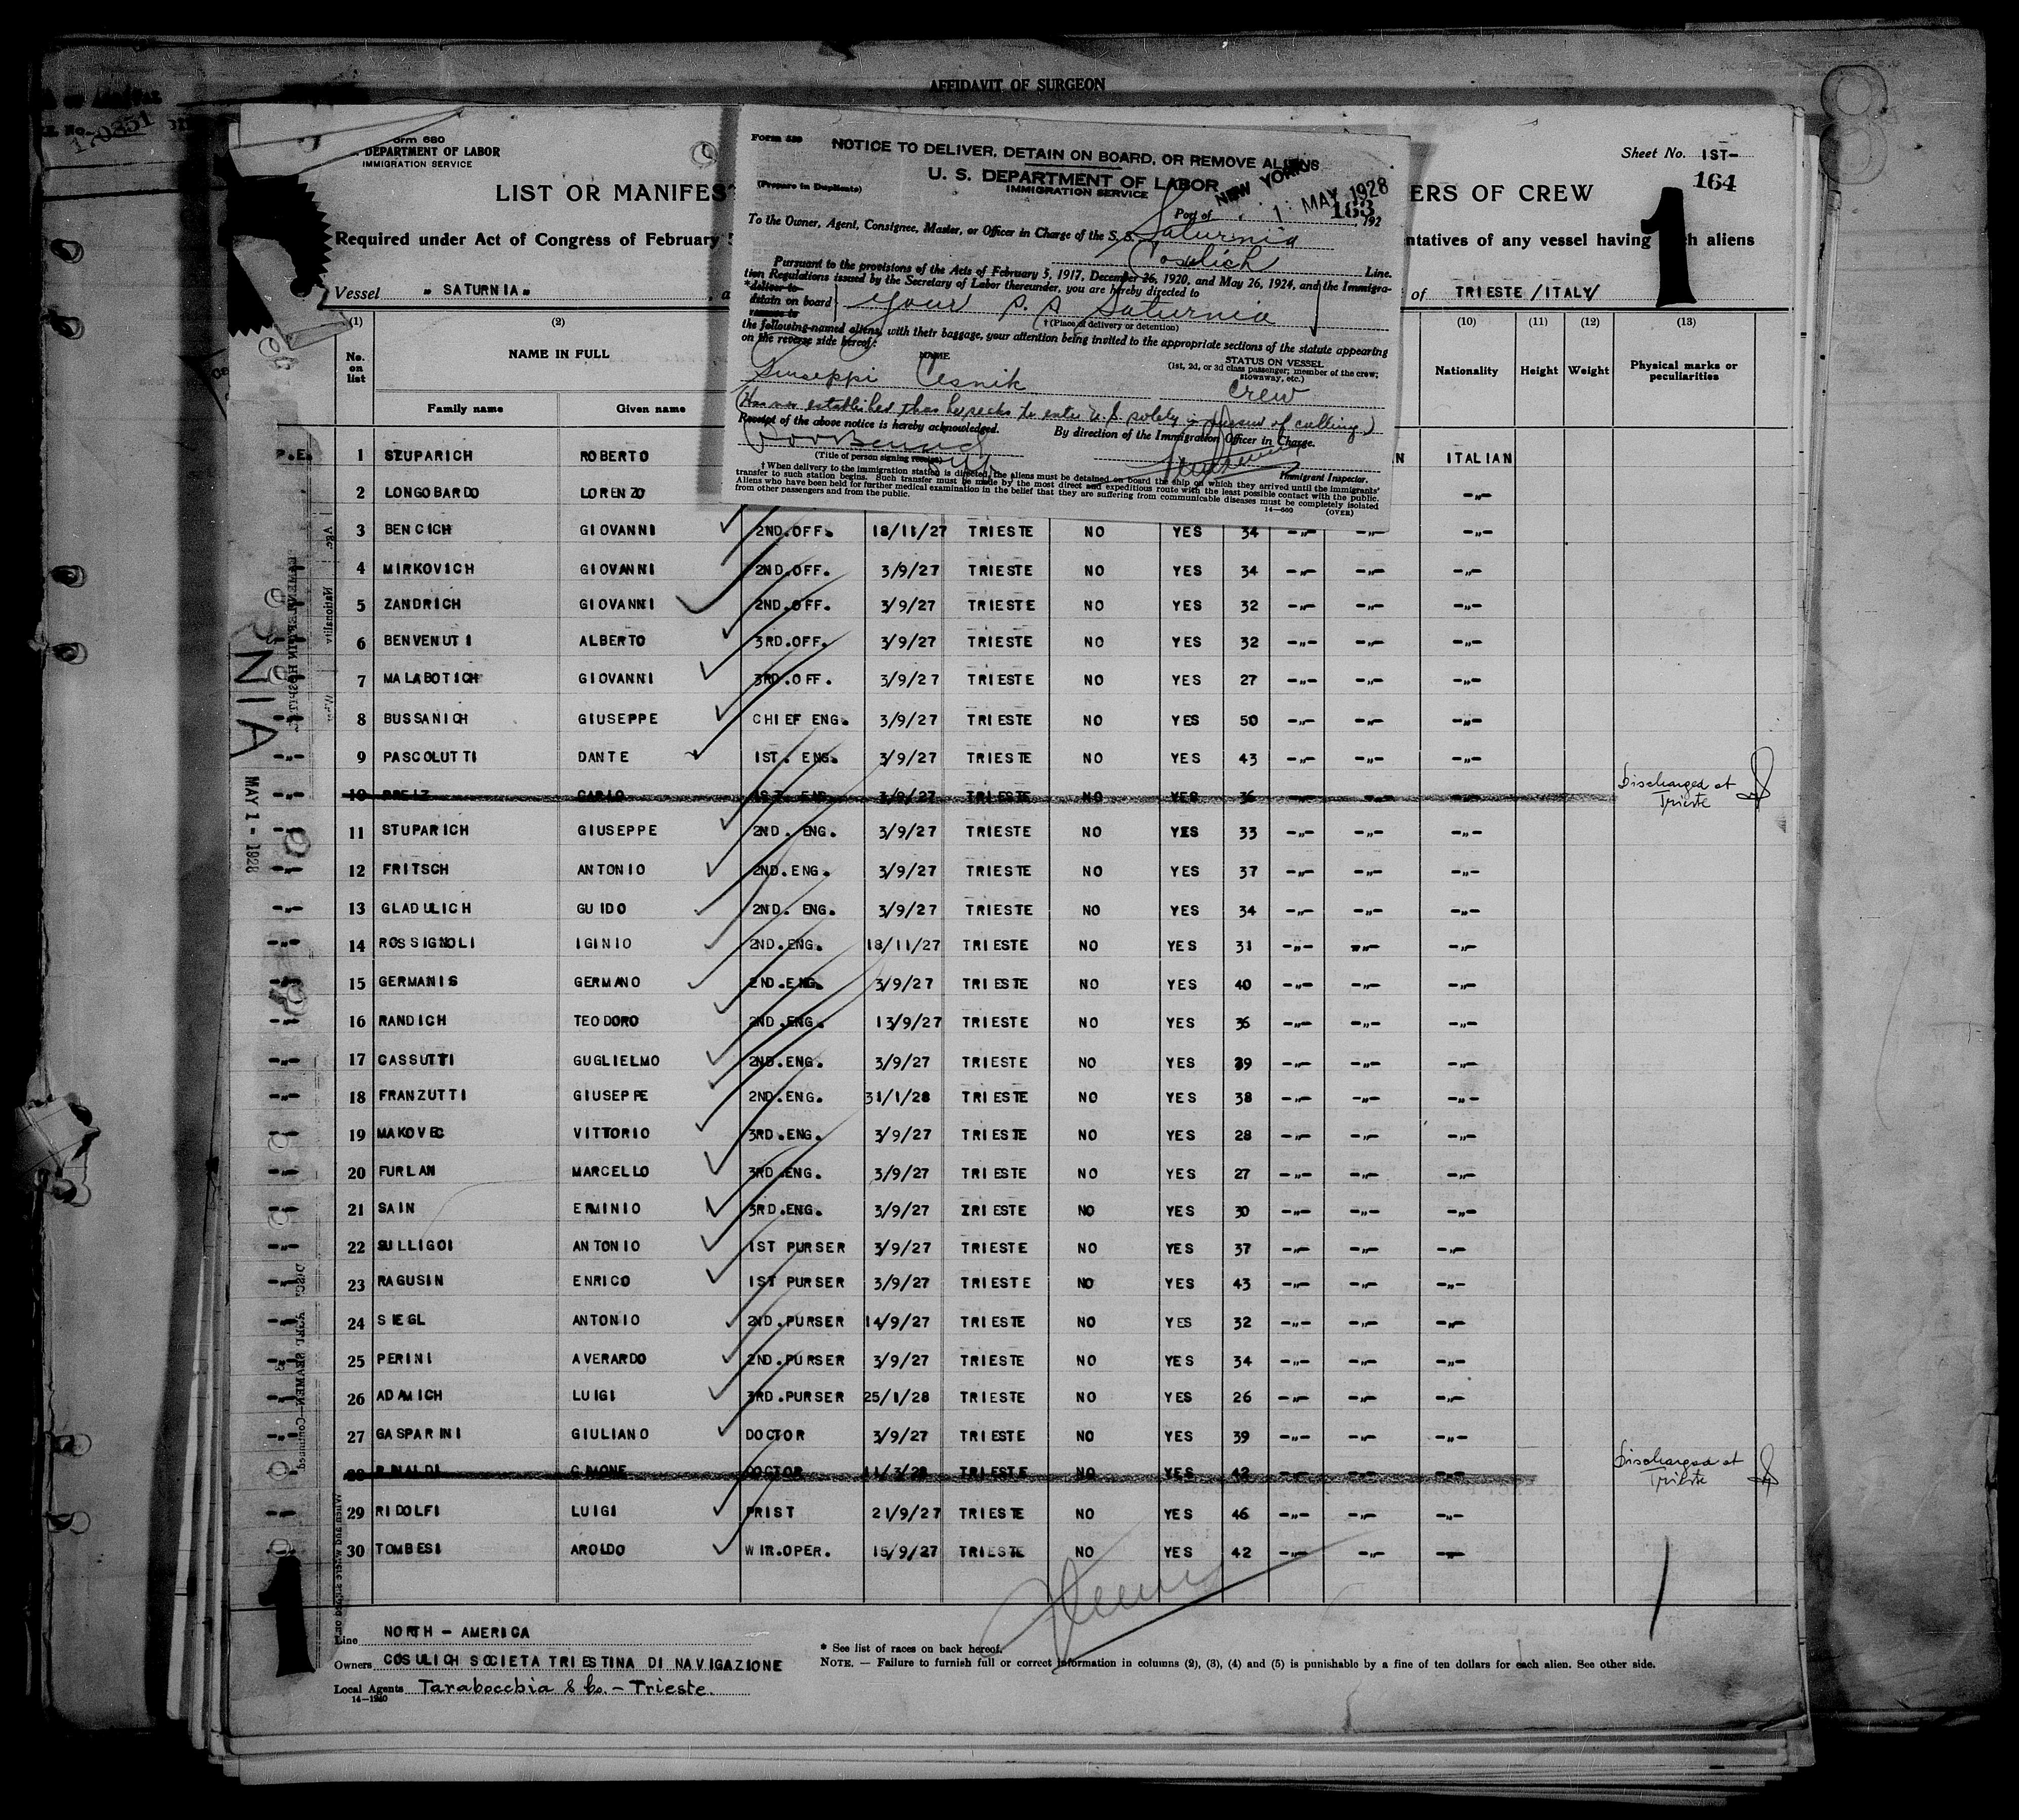 AFFIDAVIT OF SURGEON
170351
Form 680
DEPARTMENT OF LABOR
IMMIGRATION SERVICE
Sheet No. 1ST-
164
1
LIST OR MANIFEST
ERS OF CREW
Required under Act of Congress of February 5
ntatives of any vessel having such aliens
Vessel " SATURNIA "
of TRIESTE /ITALY/
NOTICE TO DELIVER, DETAIN ON BOARD, OR REMOVE ALIENS
U. S. DEPARTMENT OF LABOR
IMMIGRATION SERVICE
(Prepare in Duplicate)
NEW YORK
Port of 1 MAY 1928
163 , 192
To the Owner, Agent, Consignee, Master, or Officer in Charge of the S. S. Saturnia
Cosulich Line.
Pursuant to the provisions of the Acts of February 5, 1917, December 26, 1920, and May 26, 1924, and the Immigra-
tion Regulations issued by the Secretary of Labor thereunder, you are hereby directed to
*deliver to
detain on board
remove to
your S. S. Saturnia
†(Place of delivery or detention)
the following-named aliens, with their baggage, your attention being invited to the appropriate sections of the statute appearing
on the reverse side hereof:
NAME
STATUS ON VESSEL
(1st, 2d, or 3d class passenger; member of the crew;
stowaway, etc.)
Giuseppi Cesnik crew
established that he seeks to enter U.S. solely in pursuit of calling)
Receipt of the above notice is hereby acknowledged.
By direction of the Immigration Officer in Charge.
(Title of person signing receipt)
Immigrant Inspector.
†When delivery to the immigration station is directed, the aliens must be detained on board the ship on which they arrived until the immigrants'
transfer to such station begins. Such transfer must be made by the most direct and expeditious route with the least possible contact with the public.
Aliens who have been held for further medical examination in the belief that they are suffering from communicable diseases must be completely isolated
from other passengers and from the public.
14—660 (OVER)
(1) (2) (10) (11) (12) (13)
No. on list NAME IN FULL Nationality Height Weight Physical marks or peculiarities
Family name Given name
P.E. 1 SZUPARICH ROBERTO N ITALIAN
2 LONGOBARDO LORENZO -"-
3 BENCICH GIOVANNI 2ND.OFF. 18/11/27 TRIESTE NO YES 34 -"- -"- -"-
4 MIRKOVICH GIOVANNI 2ND.OFF. 3/9/27 TRIESTE NO YES 34 -"- -"- -"-
5 ZANDRICH GIOVANNI 2ND.OFF. 3/9/27 TRIESTE NO YES 32 -"- -"- -"-
6 BENVENUTI ALBERTO 3RD.OFF. 3/9/27 TRIESTE NO YES 32 -"- -"- -"-
7 MALABOTICH GIOVANNI 3RD.OFF. 3/9/27 TRIESTE NO YES 27 -"- -"- -"-
8 BUSSANICH GIUSEPPE CHIEF ENG. 3/9/27 TRIESTE NO YES 50 -"- -"- -"-
-"- 9 PASCOLUTTI DANTE 1ST. ENG. 3/9/27 TRIESTE NO YES 43 -"- -"- -"-
-"- 10 CARLO 1ST. ENG. 3/9/27 TRIESTE NO YES 36 Discharged at Trieste
-"- 11 STUPARICH GIUSEPPE 2ND. ENG. 3/9/27 TRIESTE NO YES 33 -"- -"- -"-
-"- 12 FRITSCH ANTONIO 2ND.ENG. 3/9/27 TRIESTE NO YES 37 -"- -"- -"-
-"- 13 GLADULICH GUIDO 2ND. ENG. 3/9/27 TRIESTE NO YES 34 -"- -"- -"-
-"- 14 ROSSIGNOLI IGINIO 2ND.ENG. 18/11/27 TRIESTE NO YES 31 -"- -"- -"-
-"- 15 GERMANIS GERMANO 2ND.ENG. 3/9/27 TRIESTE NO YES 40 -"- -"- -"-
-"- 16 RANDICH TEODORO 2ND.ENG. 13/9/27 TRIESTE NO YES 36 -"- -"- -"-
-"- 17 CASSUTTI GUGLIELMO 2ND.ENG. 3/9/27 TRIESTE NO YES 39 -"- -"- -"-
-"- 18 FRANZUTTI GIUSEPPE 2ND.ENG. 31/1/28 TRIESTE NO YES 38 -"- -"- -"-
-"- 19 MAKOVEC VITTORIO 3RD.ENG. 3/9/27 TRIESTE NO YES 28 -"- -"- -"-
-"- 20 FURLAN MARCELLO 3RD.ENG. 3/9/27 TRIESTE NO YES 27 -"- -"- -"-
-"- 21 SAIN ERMINIO 3RD.ENG. 3/9/27 ZRIESTE NO YES 30 -"- -"- -"-
-"- 22 SULLIGOI ANTONIO 1ST PURSER 3/9/27 TRIESTE NO YES 37 -"- -"- -"-
-"- 23 RAGUSIN ENRICO 1ST PURSER 3/9/27 TRIESTE NO YES 43 -"- -"- -"-
-"- 24 SIEGL ANTONIO 2ND.PURSER 14/9/27 TRIESTE NO YES 32 -"- -"- -"-
-"- 25 PERINI AVERARDO 2ND.PURSER 3/9/27 TRIESTE NO YES 34 -"- -"- -"-
-"- 26 ADAMICH LUIGI 3RD.PURSER 25/1/28 TRIESTE NO YES 26 -"- -"- -"-
-"- 27 GASPARINI GIULIANO DOCTOR 3/9/27 TRIESTE NO YES 39 -"- -"- -"-
-"- 28 RINALDI DOCTOR 11/3/28 TRIESTE NO YES 42 -"- -"- -"- Discharged at Trieste
-"- 29 RIDOLFI LUIGI PRIST 21/9/27 TRIESTE NO YES 46 -"- -"- -"-
-"- 30 TOMBESI AROLDO WIR.OPER. 15/9/27 TRIESTE NO YES 42 -"- -"- -"-
NIA
MAY 1 - 1928
1
Line NORTH - AMERICA
Owners COSULICH SOCIETA TRIESTINA DI NAVIGAZIONE
Local Agents Tarabocchia & Co. - Trieste.
14—1240
* See list of races on back hereof.
NOTE. — Failure to furnish full or correct information in columns (2), (3), (4) and (5) is punishable by a fine of ten dollars for each alien. See other side.